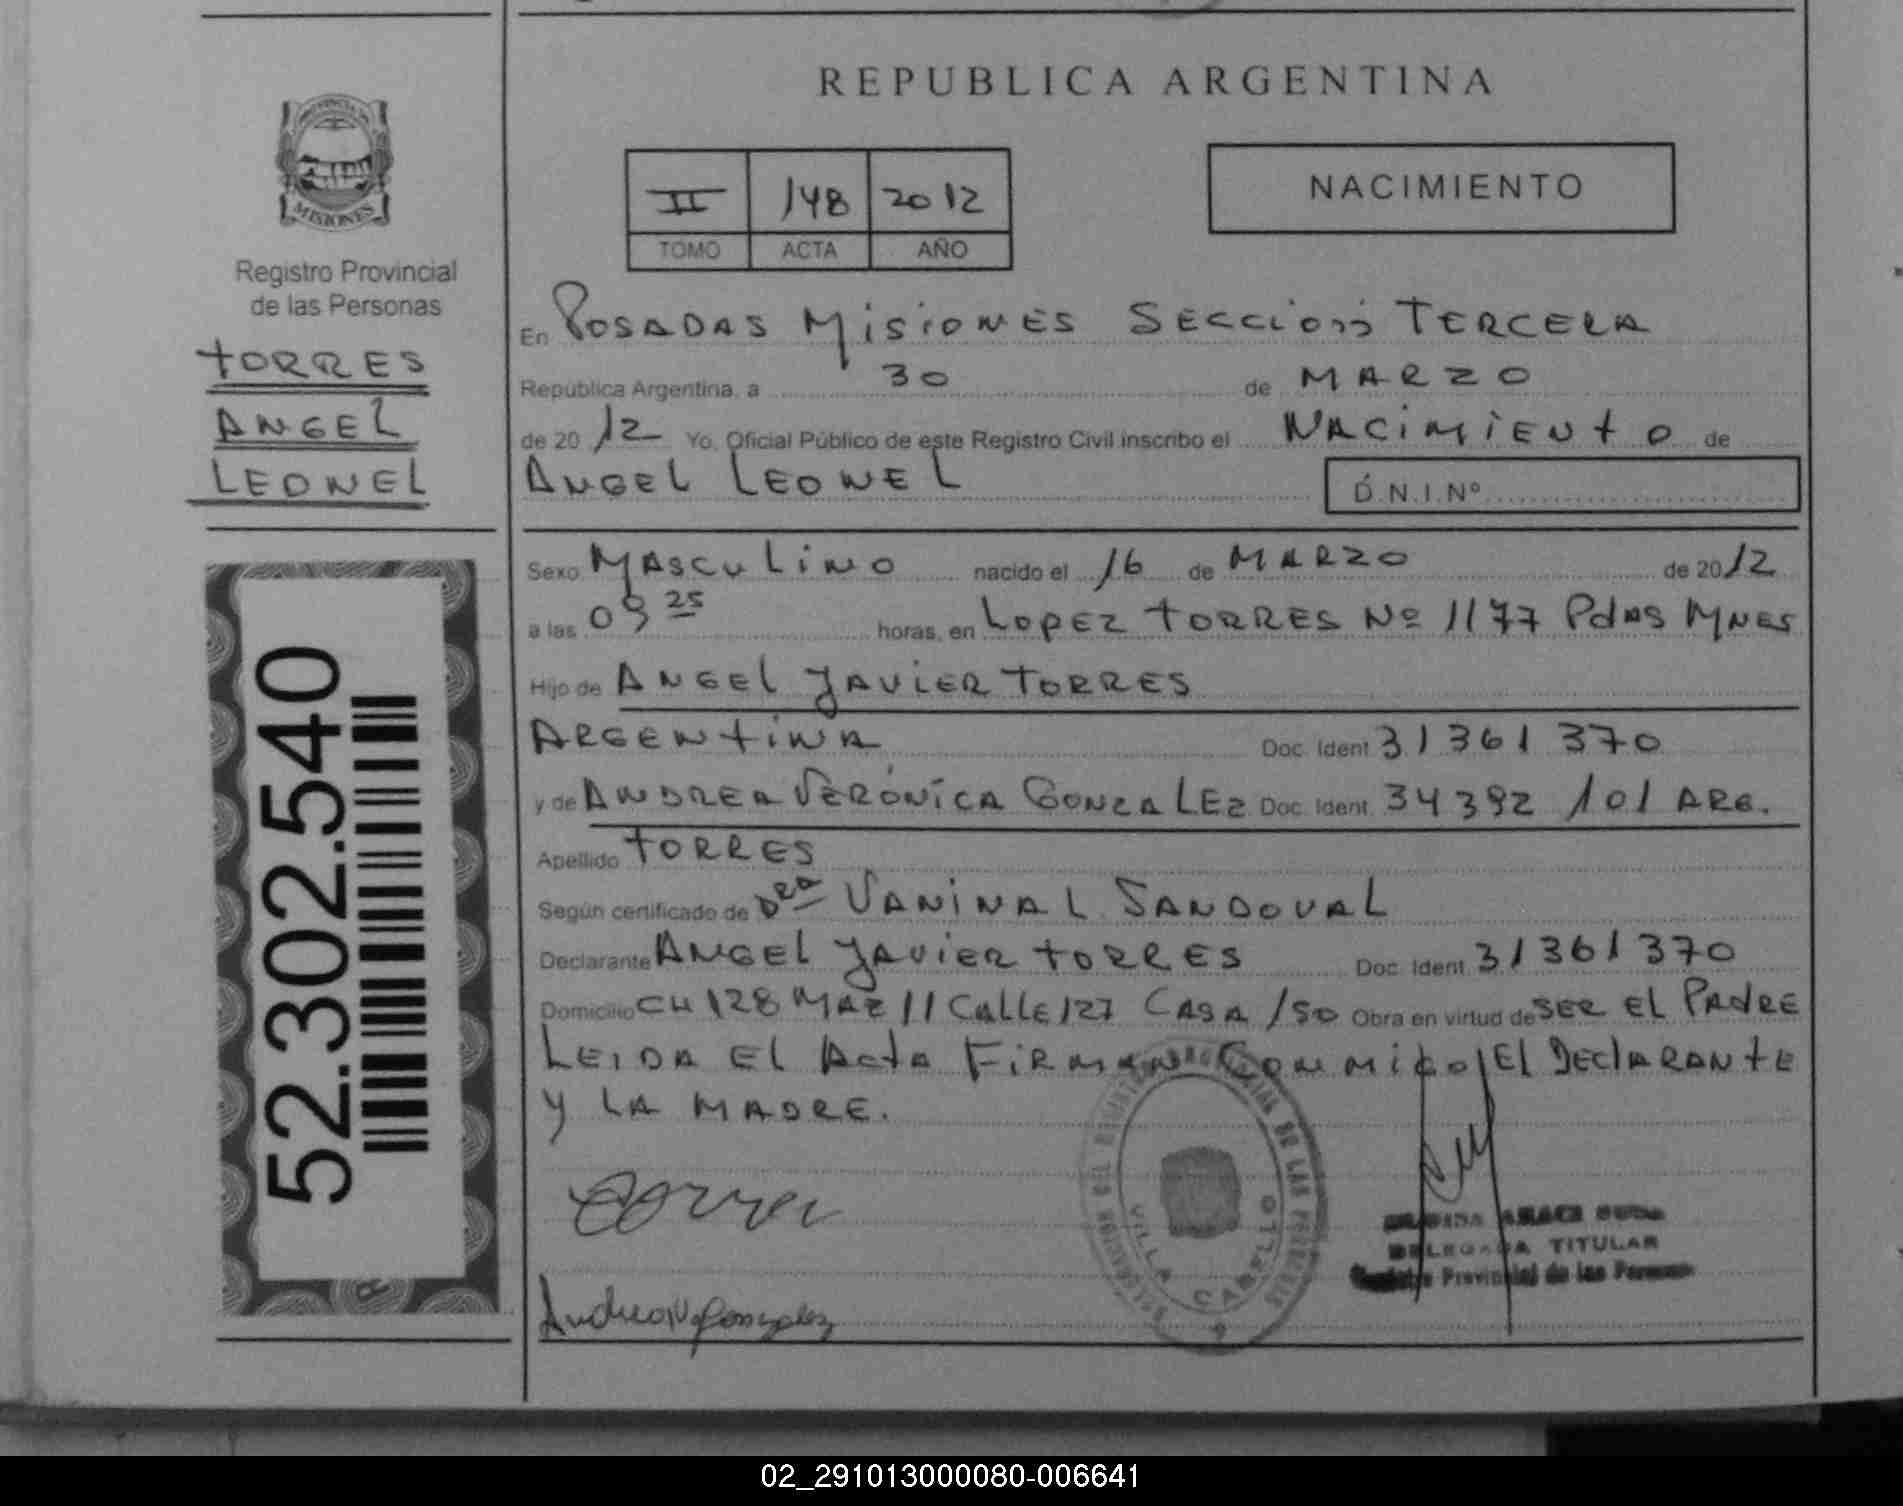 REPUBLICA ARGENTINA
PROVINCIA DE
MISIONES
Registro Provincial
de las Personas
TORRES
ANGEL
LEONEL
52.302.540
II 148 2012
TOMO ACTA AÑO
NACIMIENTO
En POSADAS MISIONES SECCION TERCERA
República Argentina, a 30 de MARZO
de 20 12 Yo, Oficial Público de este Registro Civil inscribo el NACIMIENTO de
ANGEL LEONEL D.N.I.Nº
Sexo MASCULINO nacido el 16 de MARZO de 2012
a las 09 25 horas, en LOPEZ TORRES Nº 1177 Pdas MNES
Hijo de ANGEL JAVIER TORRES
ARGENTINA Doc. Ident 31361370
y de ANDREA VERÓNICA GONZALEZ Doc. Ident. 34392 101 ARG.
Apellido TORRES
Según certificado de DRA VANINA L. SANDOVAL
Declarante ANGEL JAVIER TORRES Doc. Ident. 31361370
Domicilio CH 128 MAZ 11 CALLE 127 CASA 150 Obra en virtud de SER EL PADRE
LEIDA EL ACTA FIRMAN CONMIGO EL DECLARANTE
Y LA MADRE.
Torres
Andrea V Gonzalez
VILLA CABELLO
DELEGADA TITULAR
Registro Provincial de las Personas
02_291013000080-006641